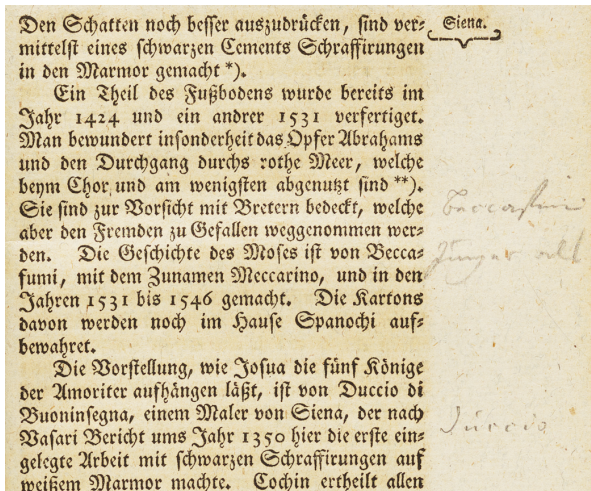 Siena.
Den Schatten noch besser auszudrücken, sind ver-
mittelst eines schwarzen Cements Schraffirungen
in den Marmor gemacht *).
Ein Theil des Fußbodens wurde bereits im
Jahr 1424 und ein andrer 1531 verfertiget.
Man bewundert insonderheit das Opfer Abrahams
und den Durchgang durchs rothe Meer, welche
beym Chor und am wenigsten abgenutzt sind **).
Sie sind zur Vorsicht mit Bretern bedeckt, welche
aber den Fremden zu Gefallen weggenommen wer-
den. Die Geschichte des Moses ist von Becca-
fumi, mit dem Zunamen Meccarino, und in den
Jahren 1531 bis 1546 gemacht. Die Kartons
davon werden noch im Hause Spanochi auf-
bewahret.
Die Vorstellung, wie Josua die fünf Könige
der Amoriter aufhängen läßt, ist von Duccio di
Buoninsegna, einem Maler von Siena, der nach
Vasari Bericht ums Jahr 1350 hier die erste ein-
gelegte Arbeit mit schwarzen Schraffirungen auf
weißem Marmor machte. Cochin ertheilt allen
Duccio